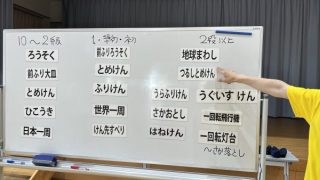 10〜2級
ろうそく
前ふり大皿
とめけん
ひこうき
日本一周
1・準初・初
前ふりろうそく
とめけん
ふりけん
世界一周
けん先すべり
2段以上
地球まわし
つるしとめけん
うらふりけん
うぐいす けん
さかおとし
一回転飛行機
はねけん
一回転灯台
〜さか落とし